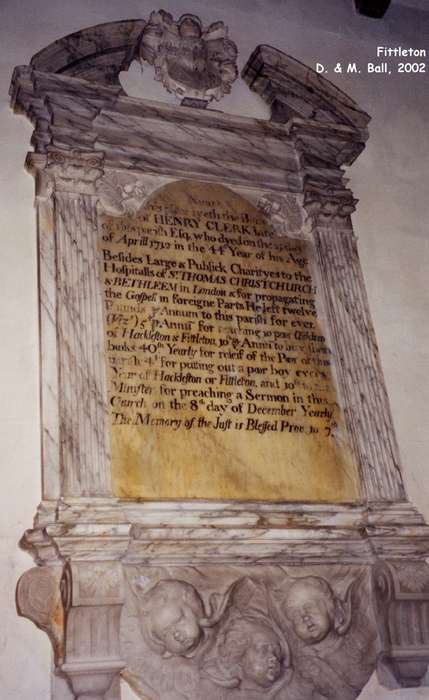 Fittleton
D. & M. Ball, 2002
Near
lyeth the Body
of HENRY CLERK late
of this parish Esq. who dyed on the
of Aprill 1712 in the 44th Year of his Age
Besides Large & Publick Charityes to the
Hospitalls of St. THOMAS CHRISTCHURCH
& BETHLEEM in London & for propagating
the Gospell in foreigne Parts He left twelve
Pounds p Annum to this parish for ever
(Vizt) 5li p Annum for teaching 10 poor Children
of Hackleston & Fittleton, 10s p Annum to buy them
books 40sh Yearly for releif of the Poor of this
parish 4li for putting out a poor boy every
Year of Hackleston or Fittleton, and 10sh to the
Minister for preaching a Sermon in this
Church on the 8th day of December Yearly
The Memory of the Just is Blessed Prov. 10 7th